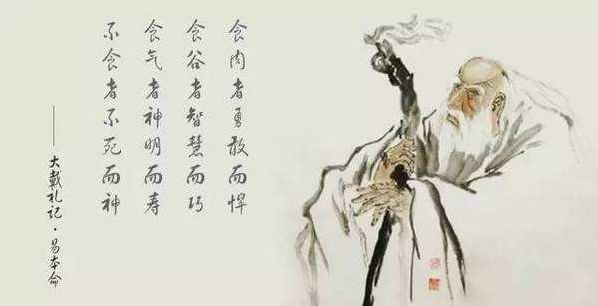 食肉者勇敢而悍
食谷者智慧而巧
食气者神明而寿
不食者不死而神
——大戴札记·易本命